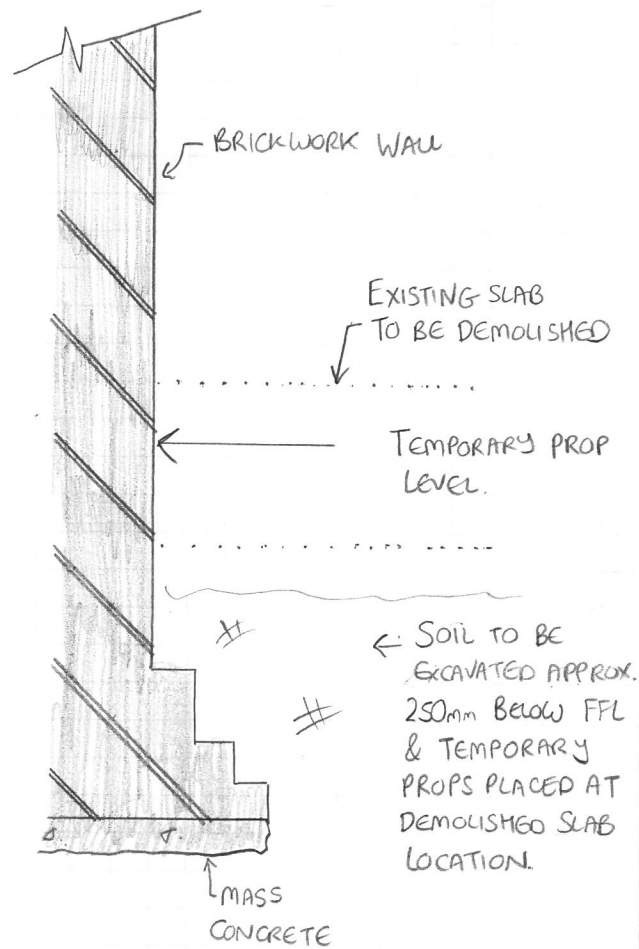 BRICKWORK WALL
EXISTING SLAB
TO BE DEMOLISHED
TEMPORARY PROP
LEVEL.
SOIL TO BE
EXCAVATED APPROX.
250mm BELOW FFL
& TEMPORARY
PROPS PLACED AT
DEMOLISHED SLAB
LOCATION.
MASS
CONCRETE